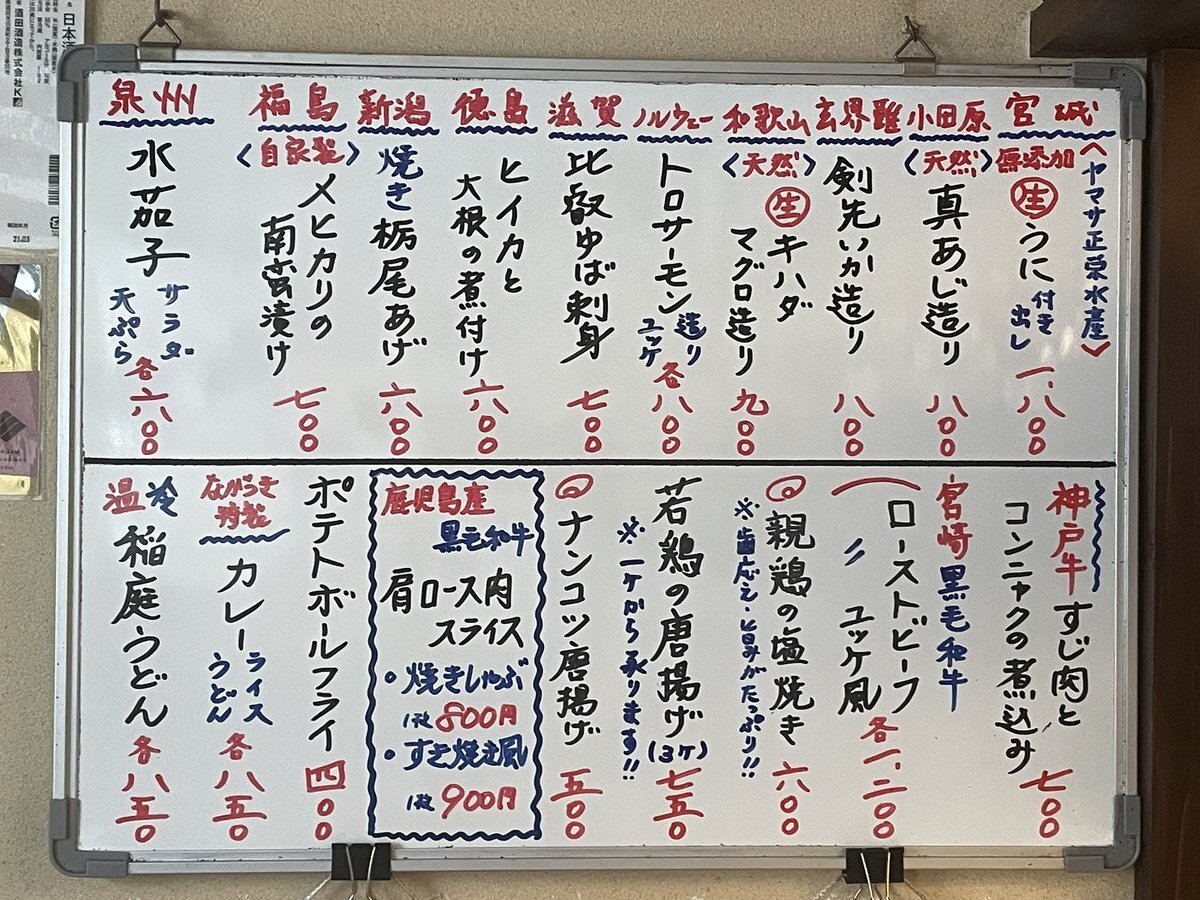 宮城
〈ヤマサ正栄水産〉
無添加
生うに
付き出し
一、八〇〇
小田原
〈天然〉
真あじ造り
八〇〇
玄界灘
剣先いか造り
八〇〇
和歌山
〈天然〉
生キハダ
マグロ造り
九〇〇
ノルウェー
トロサーモン
造り
ユッケ
各八〇〇
滋賀
比叡ゆば刺身
七〇〇
徳島
ヒイカと
大根の煮付け
六〇〇
新潟
焼き栃尾あげ
六〇〇
福島
〈自家製〉
メヒカリの
南蛮漬け
七〇〇
泉州
水茄子
サラダ
天ぷら
各六八〇〇
神戸牛すじ肉と
コンニャクの煮込み
七〇〇
宮崎黒毛和牛
ローストビーフ
〃 ユッケ風
各一、二〇〇
親鶏の塩焼き
※歯応え・旨みがたっぷり!!
六〇〇
若鶏の唐揚げ(3ヶ)
※一ケから承ります!!
七五〇
ナンコツ唐揚げ
五〇〇
鹿児島産
黒毛和牛
肩ロース肉
スライス
・焼きしゃぶ
1枚800円
・すき焼き風
1枚900円
ポテトボールフライ
四〇〇
ながらき
特製
カレー
ライス
うどん
各八五〇
温冷
稲庭うどん
各八五〇
酒田酒造株式会社K
21.03